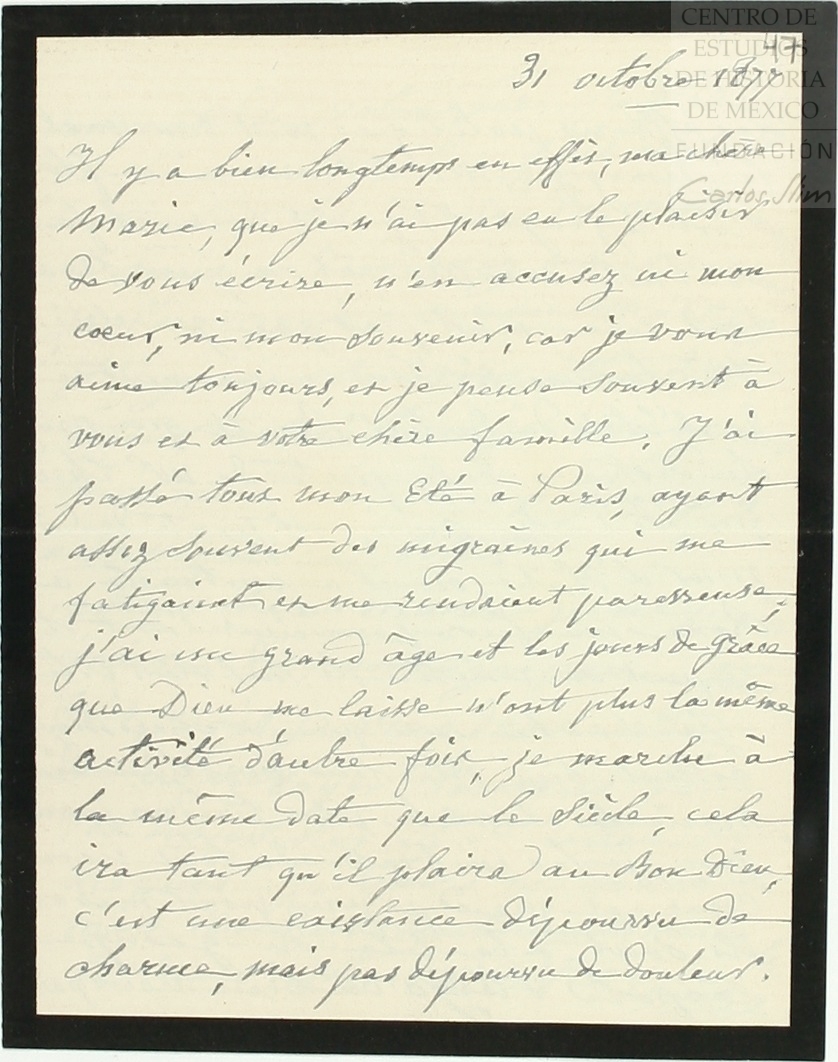 CENTRO DE
ESTUDIOS
DE HISTORIA
DE MÉXICO
FUNDACIÓN
Carlos Slim
47
31 octobre 1877
Il y a bien longtemps en effet, ma chère
Marie, que je n'ai pas eu le plaisir
de vous écrire, n'en accusez ni mon
coeur, ni mon souvenir, car je vous
aime toujours, et je pense souvent à
vous et à votre chère famille. J'ai
passé tous mon Eté à Paris, ayant
assez souvent des migraines qui me
fatigaient et me rendaient paresseuse,
j'ai un grand âge et les jours de grâce
que Dieu me laisse n'ont plus la même
activité d'autre fois, je marche à
la même date que le Siècle, cela
ira tant qu'il plaira au Bon Dieu,
c'est une existance dépourvu de
charme, mais pas dépourvu de douleur.